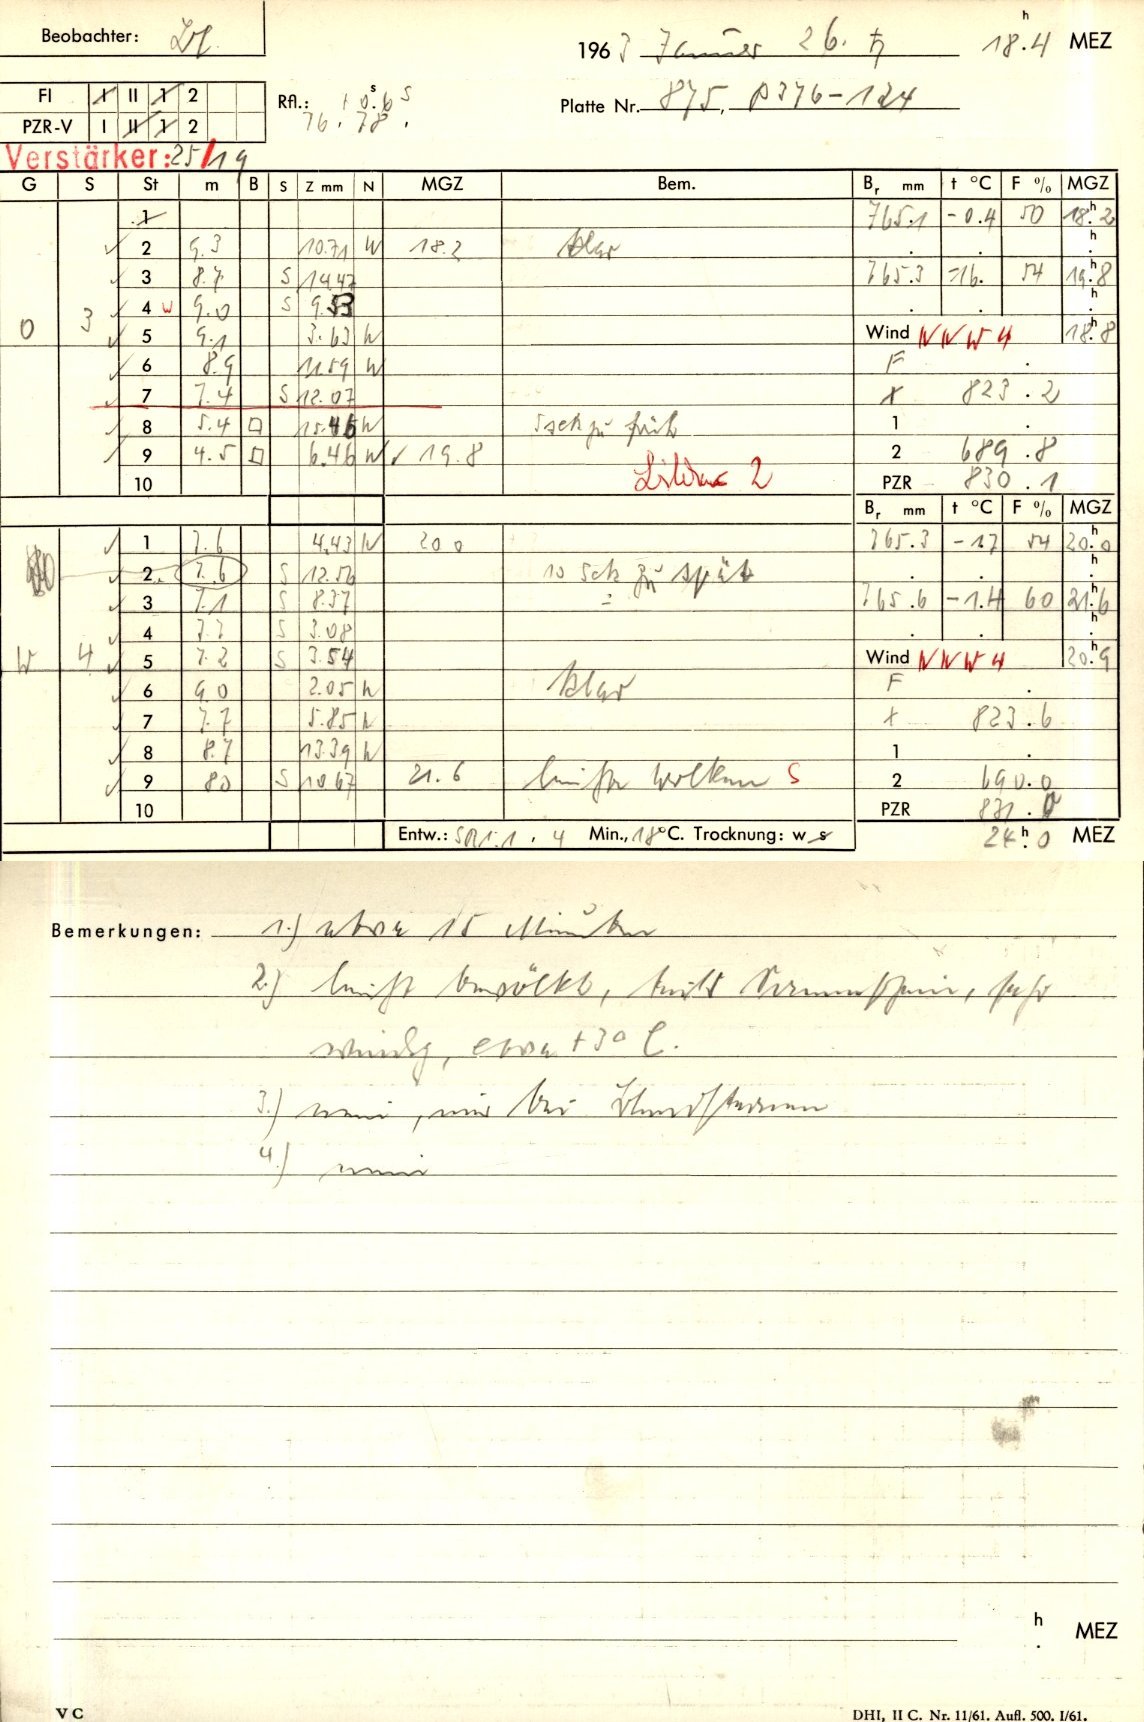 Beobachter:
1963 Januar 26. ♄ 18.4 h MEZ
FI I II 1 2
PZR-V I II 1 2
Rfl.: + 0.6 s
76. 78.
Platte Nr. 875, P376-124
Verstärker: 25/19
G S St m B S Z mm N MGZ Bem. Br mm t °C F % MGZ
1 765.1 -0.4 50 18.h2
2 9.3 10.71 W 18.2 klar
3 8.7 S 14.47 765.3 -16. 54 19.h8
4 w 9.0 S 9.53
0 3
5 9.1 3.63 W Wind NNW 4 18.h8
6 8.9 11.59 W F
7 7.4 S 12.07 x 823.2
8 5.4 □ 15.46 W 5 sek zu früh 1
9 4.5 □ 6.46 W ✓ 19.8 2 689.8
10 2 PZR 830.1
Br mm t °C F % MGZ
1 7.6 4.43 W 20 0 765.3 -17 54 20.h0
2 7.6 S 12.56 10 sek zu spät
3 7.1 S 8.37 765.6 -1.4 60 21.h6
4 7.7 S 3.08
W 4 5 7.2 S 3.54 Wind NNW 4 20.h9
6 9.0 2.05 W klar F
7 7.7 5.85 W x 823.6
8 8.7 13.39 W 1
9 8.0 S 10.67 21.6 leichte Wolken S 2 690.0
10 PZR 831.0
Entw.: 1:1, 4 Min., 18°C. Trocknung: w s 24.h0 MEZ
Bemerkungen: 1.) etwa 15 Minuten
2.) leicht bewölkt, teils Sonnenschein, sehr
windig, etwa +3° C.
3.) nein, nur bei
4.) nein
h MEZ
V C DHI, II C. Nr. 11/61. Aufl. 500. I/61.